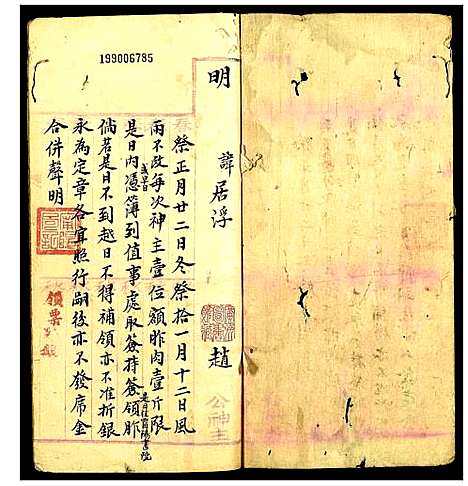 199006785
明 諱居浮 趙 公神主
春祭正月廿二日冬祭拾一月十二日風
雨不改每次神主壹位額胙肉壹斤限
是日內憑簿到值事處取簽持簽領胙
或早日
是日往質陽書院
倘若是日不到越日不得補領亦不准折銀
永為定章各宜照行嗣後亦不發席金
合併聲明
領票